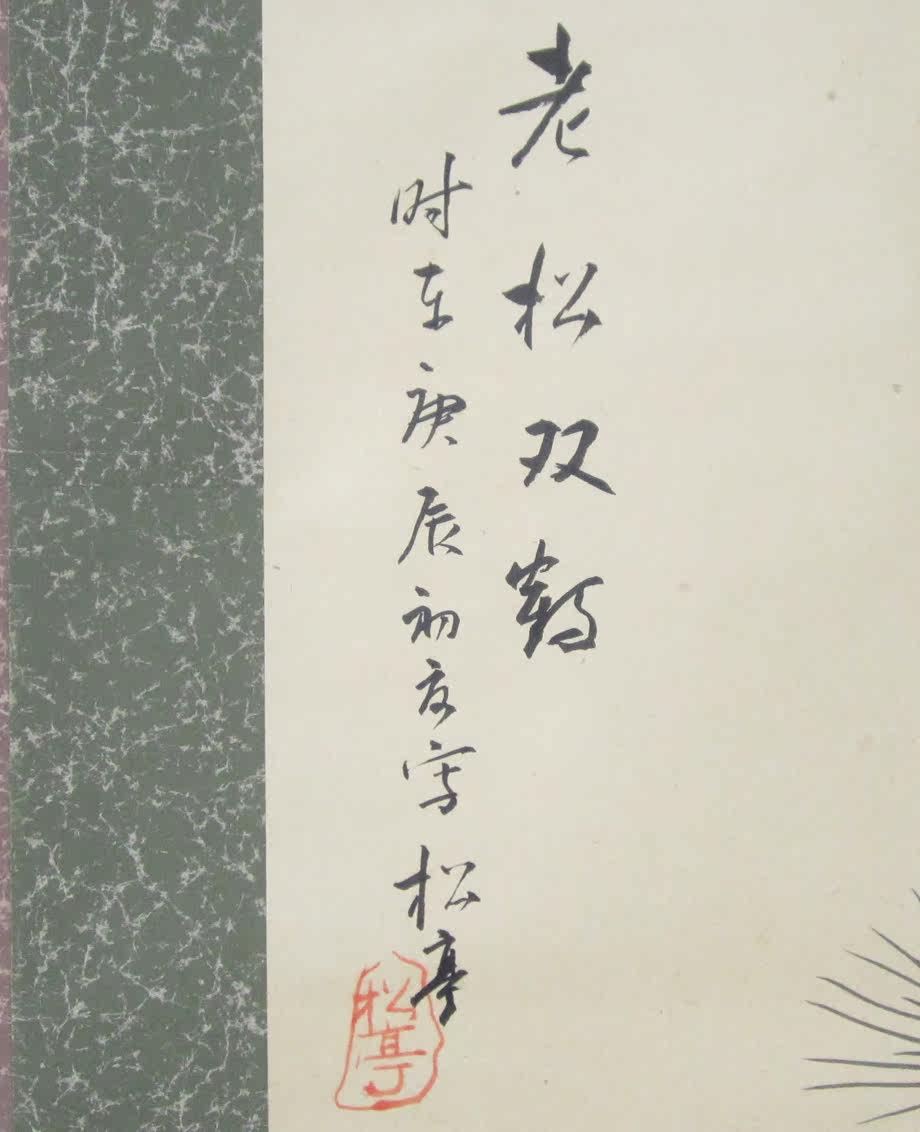 老松双鹤
时在庚辰初夏写 松亭
松亭